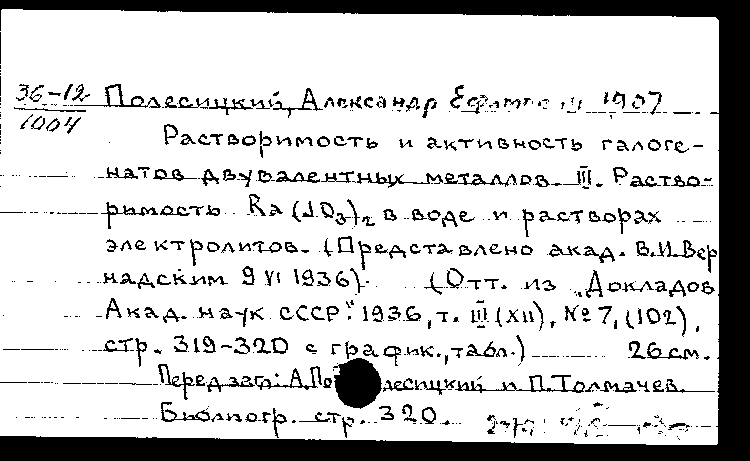 36-12 Полесицкий, Александр 1907
1004
Растворимость и активность галоге-
натов двувалентных металлов. III. Раство-
римость Ra(JO3)2 в воде и растворах
электролитов. (Представлено акад. В.И.Вер
надским 9 VI 1936). (Отт. из „Докладов
Акад. наук СССР". 1936, т. III (XII), № 7, (102),
стр. 319-320 с график., табл.) 26 см.
Перед загл: А. лесицкий и П. Толмачев.
Библиогр. стр. 320.